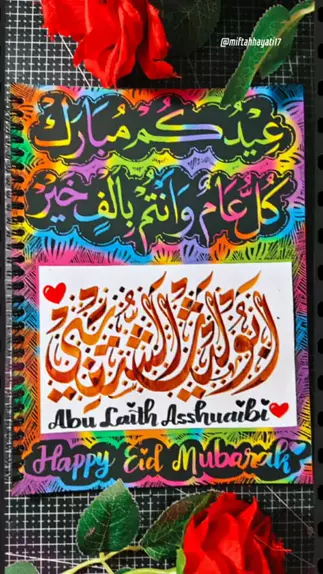 @miftahhayati17
عِيْدُكُمْ مُبَارَكْ
كُلُّ عَامٍ وَانْتُمْ بِالْفِ خَيْرٍ
ابو ليث الشعيبي
Abu Laith Asshuaibi
Happy Eid Mubarak